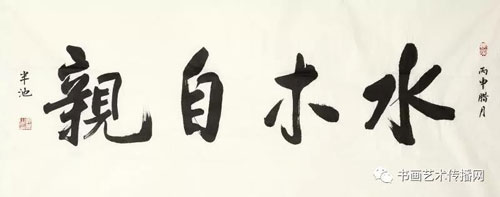 丙申腊月
水木自親
半池
书画艺术传播网